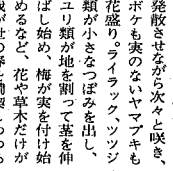 発散させながら次々と咲き、
ボケも実のないヤマブキも
花盛り。ライラック、ツツジ
類が小さなつぼみを出し、
ユリ類が地を割って茎を伸
ばし始め、梅が実を付け始
めるなど、花や草木だけが